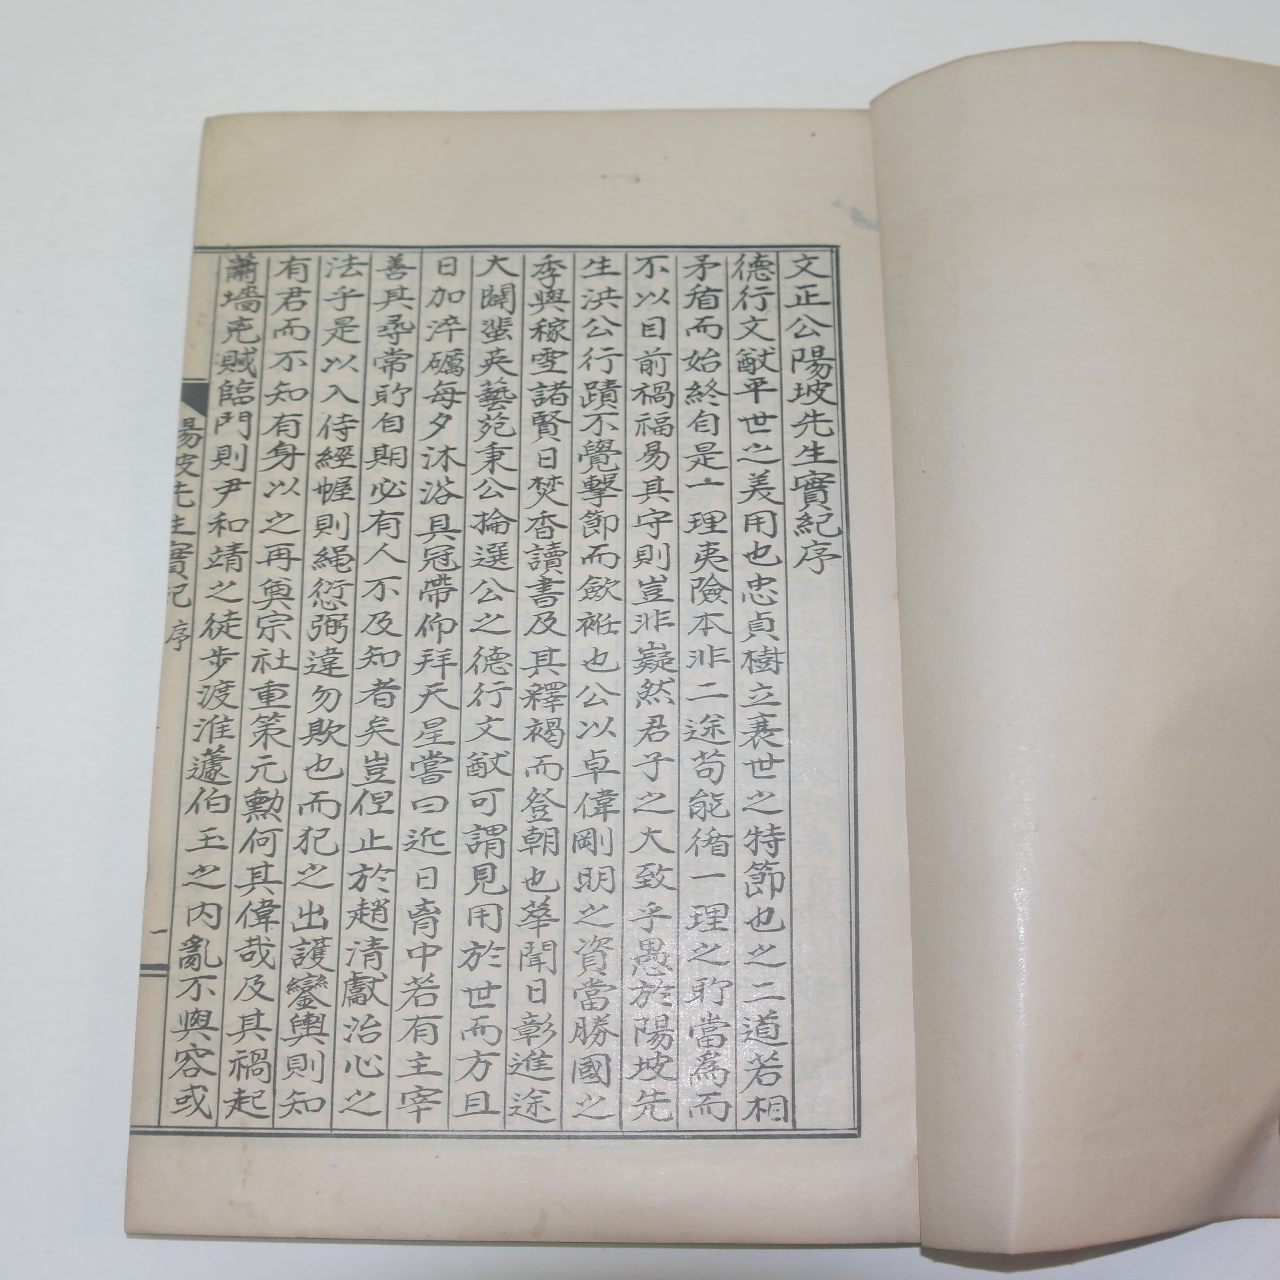 文正公陽坡先生實紀序
德行文猷平世之美用也忠貞樹立衰世之特節也之二道若相
矛盾而始終自是一理夷險本非二途苟能循一理之所當爲而
不以目前禍福易其守則豈非嶷然君子之大致乎愚於陽坡先
生洪公行蹟不覺擊節而歛袵也公以卓偉剛明之資當勝國之
季與稼雪諸賢日焚香讀書及其釋褐而登朝也華聞日彰進途
大闢蜚英藝苑秉公掄選公之德行文猷可謂見用於世而方且
日加淬礪每夕沐浴具冠帶仰拜天星嘗曰近日胷中若有主宰
善其尋常所自期必有人不及知者矣豈但止於趙清獻治心之
法乎是以入侍經幄則繩愆弼違勿欺也而犯之出護鑾輿則知
有君而不知有身以之再奠宗社重策元勳何其偉哉及其禍起
蕭墻兇賊臨門則尹和靖之徒步渡淮蘧伯玉之內亂不與容或
陽坡先生實紀 序
一